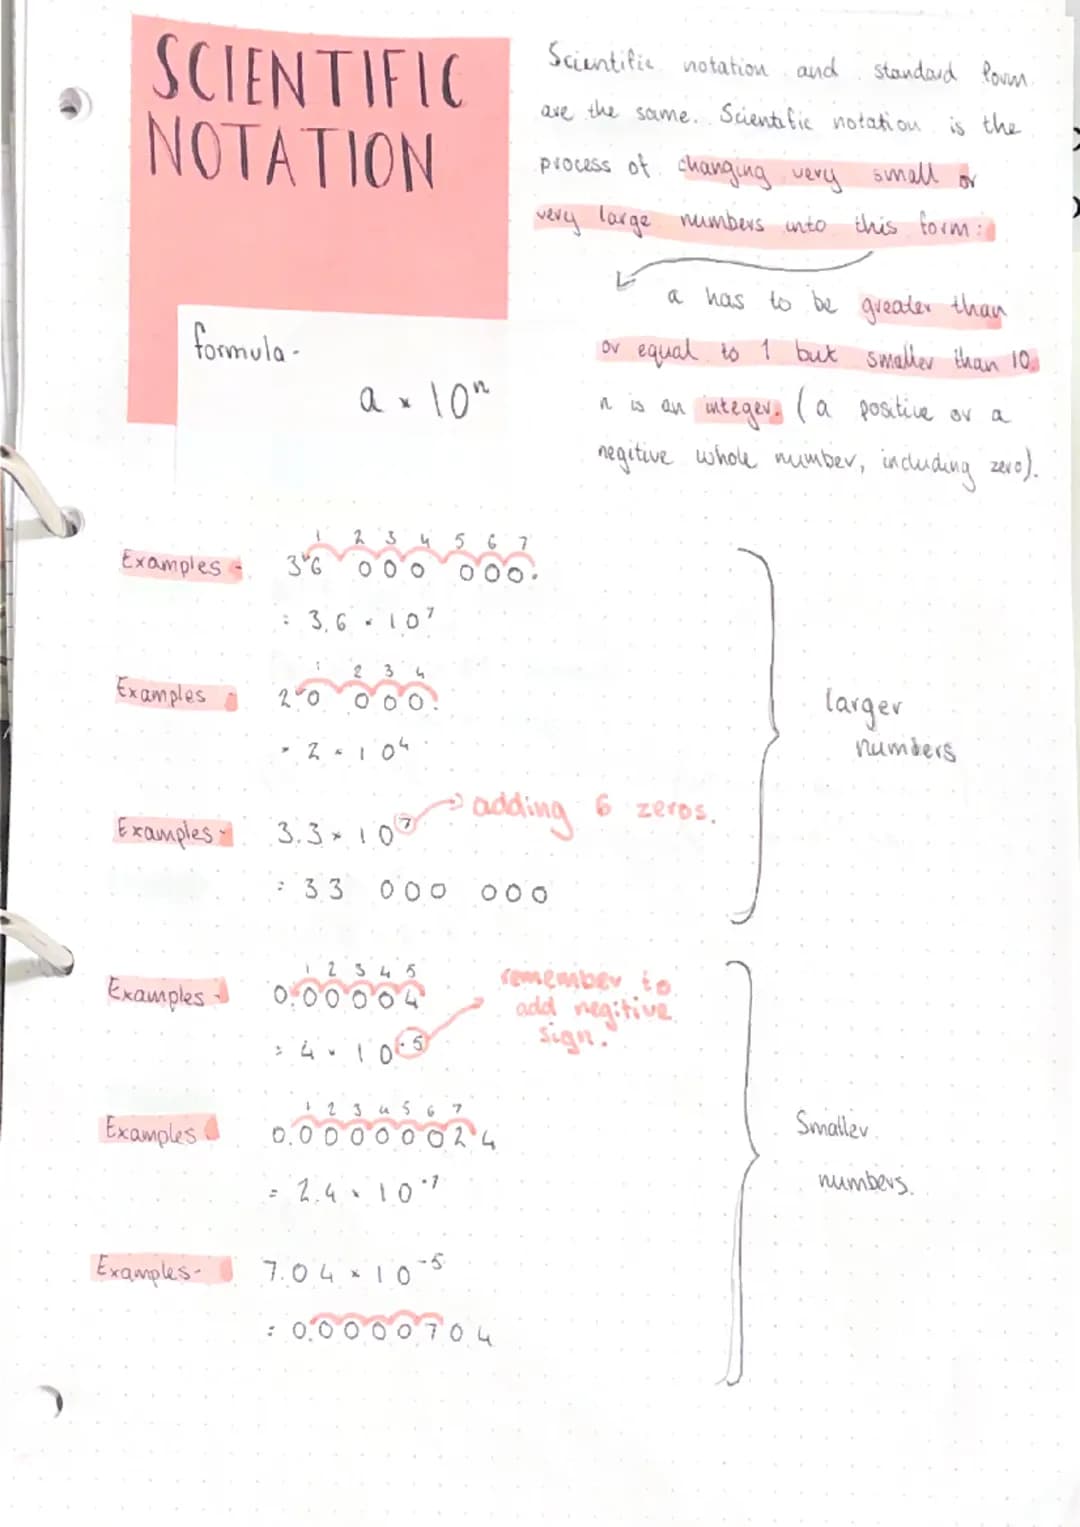 SCIENTIFIC
NOTATION
formula -
a × 10ⁿ
Scientific notation and standard form
are the same. Scientific notation is the
process of changing very small or
very large numbers into this form:
a has to be greater than
or equal to 1 but smaller than 10
n is an integer. (a positive or a
negitive whole number, including zero).
1 2 3 4 5 6 7
Examples - 36 000 000.
= 3.6 × 10⁷
1 2 3 4
Examples - 20 000.
= 2 × 10⁴
Examples - 3.3 × 10⁷ → adding 6 zeros.
= 33 000 000
larger
numbers
1 2 3 4 5
Examples - 0.00004
= 4 × 10⁻⁵
remember to
add negitive
sign.
1 2 3 4 5 6 7
Examples 0.00000024
= 2.4 × 10⁻⁷
Examples - 7.04 × 10⁻⁵
= 0.0000704
Smaller
numbers.